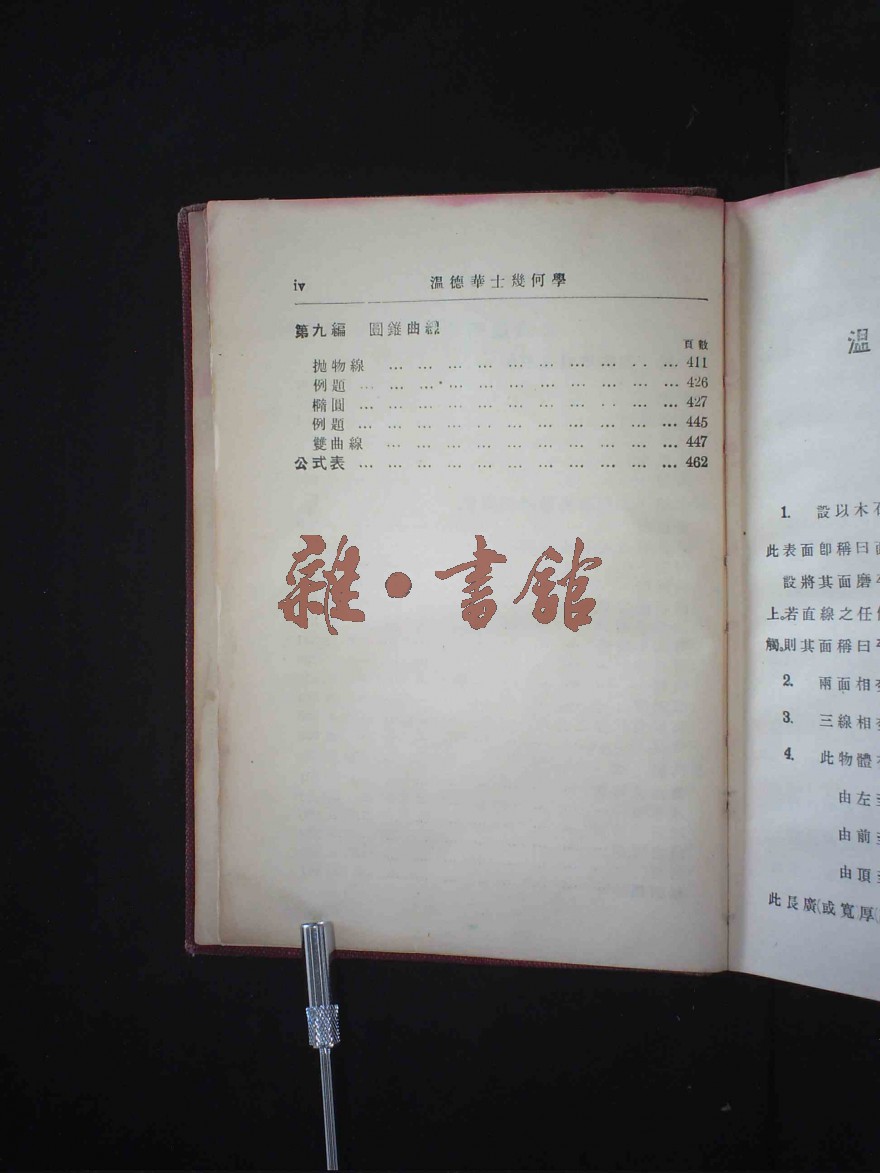 iv 溫德華士幾何學
第九編 圓錐曲線
頁數
拋物線 ... ... ... ... ... ... ... ... ... ... 411
例題 ... ... ... ... ... ... ... ... ... ... ... 426
橢圓 ... ... ... ... ... ... ... ... ... ... ... 427
例題 ... ... ... ... ... ... ... ... ... ... ... 445
雙曲線 ... ... ... ... ... ... ... ... ... ... 447
公式表 ... ... ... ... ... ... ... ... ... ... ... 462
雜·書館
溫
1. 設以木
此表面卽稱曰
設將其面磨
上。若直線之任
觸。則其面稱曰
2. 兩面相
3. 三線相
4. 此物體
由左
由前
由頂
此長廣(或寬)厚